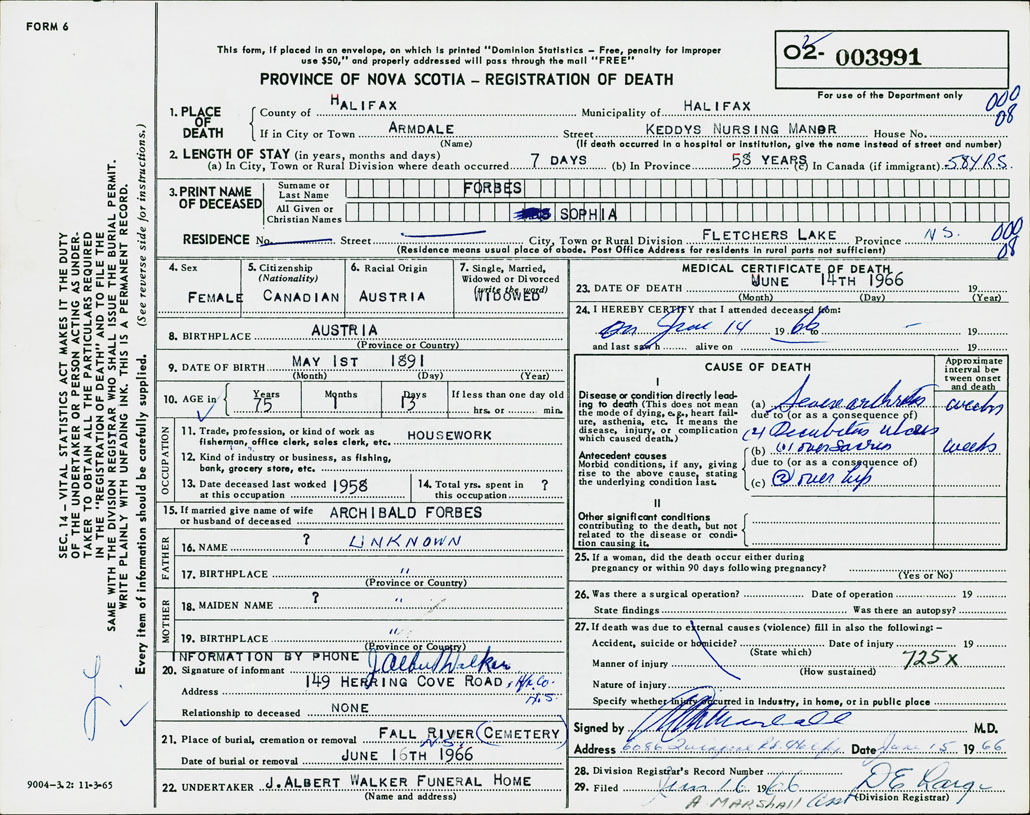 FORM 6
This form, if placed in an envelope, on which is printed "Dominion Statistics – Free, penalty for improper
use $50," and properly addressed will pass through the mail "FREE"
O2- 003991
PROVINCE OF NOVA SCOTIA – REGISTRATION OF DEATH
For use of the Department only
000
08
1. PLACE OF DEATH
County of HALIFAX Municipality of HALIFAX
If in City or Town ARMDALE Street KEDDYS NURSING MANOR House No.
(Name) (If death occurred in a hospital or institution, give the name instead of street and number)
2. LENGTH OF STAY (in years, months and days)
(a) In City, Town or Rural Division where death occurred 7 DAYS (b) In Province 58 YEARS (c) In Canada (if immigrant) 58 YRS.
3. PRINT NAME OF DECEASED
Surname or Last Name FORBES
All Given or Christian Names SOPHIA
RESIDENCE No. Street City, Town or Rural Division FLETCHERS LAKE Province N S.
(Residence means usual place of abode. Post Office Address for residents in rural parts not sufficient)
000
08
4. Sex FEMALE
5. Citizenship (Nationality) CANADIAN
6. Racial Origin AUSTRIA
7. Single, Married, Widowed or Divorced (write the word) WIDOWED
8. BIRTHPLACE AUSTRIA
(Province or Country)
9. DATE OF BIRTH MAY 1ST 1891
(Month) (Day) (Year)
10. AGE in Years 75 Months 1 Days 13 If less than one day old
hrs. or min.
OCCUPATION
11. Trade, profession, or kind of work as
fisherman, office clerk, sales clerk, etc. HOUSEWORK
12. Kind of industry or business, as fishing,
bank, grocery store, etc.
13. Date deceased last worked at this occupation 1958
14. Total yrs. spent in this occupation ?
15. If married give name of wife
or husband of deceased ARCHIBALD FORBES
FATHER
16. NAME ? UNKNOWN
17. BIRTHPLACE "
(Province or Country)
MOTHER
18. MAIDEN NAME ? "
19. BIRTHPLACE "
(Province or Country)
INFORMATION BY PHONE
20. Signature of informant J Albert Walker
Address 149 HERRING COVE ROAD, Hfx. Co. N.S.
Relationship to deceased NONE
21. Place of burial, cremation or removal FALL RIVER (CEMETERY)
N.S.
Date of burial or removal JUNE 16TH 1966
22. UNDERTAKER J. ALBERT WALKER FUNERAL HOME
(Name and address)
MEDICAL CERTIFICATE OF DEATH
23. DATE OF DEATH JUNE 14TH 1966 19
(Month) (Day) (Year)
24. I HEREBY CERTIFY that I attended deceased from:
on June 14 1966 to – 19
and last saw h alive on 19
CAUSE OF DEATH
Approximate interval between onset and death
I
Disease or condition directly leading to death (This does not mean the mode of dying, e.g., heart failure, asthenia, etc. It means the disease, injury, or complication which caused death.)
(a) Severe arthritis weeks
due to (or as a consequence of)
(2) Decubitus ulcers
Antecedent causes
Morbid conditions, if any, giving rise to the above cause, stating the underlying condition last.
(b) (1) over Sacrum weeks
due to (or as a consequence of)
(c) (2) over hip
II
Other significant conditions
contributing to the death, but not related to the disease or condition causing it.
25. If a woman, did the death occur either during
pregnancy or within 90 days following pregnancy?
(Yes or No)
26. Was there a surgical operation? Date of operation 19
State findings Was there an autopsy?
27. If death was due to external causes (violence) fill in also the following: –
Accident, suicide or homicide? Date of injury 19
(State which)
Manner of injury 725X
(How sustained)
Nature of injury
Specify whether injury occurred in industry, in home, or in public place
Signed by Marshall M.D.
Address 6086 Quinpool Rd. Halifax Date June 15 1966
28. Division Registrar's Record Number
29. Filed June 16 1966 D E Large
A MARSHALL Asst (Division Registrar)
SEC. 14 – VITAL STATISTICS ACT MAKES IT THE DUTY
OF THE UNDERTAKER OR PERSON ACTING AS UNDER-
TAKER TO OBTAIN ALL THE PARTICULARS REQUIRED
IN THE "REGISTRATION OF DEATH" AND TO FILE THE
SAME WITH THE DIVISION REGISTRAR WHO SHALL ISSUE THE BURIAL PERMIT.
WRITE PLAINLY WITH UNFADING INK. THIS IS A PERMANENT RECORD.
Every item of information should be carefully supplied. (See reverse side for instructions.)
9004–3.2: 11-3-65